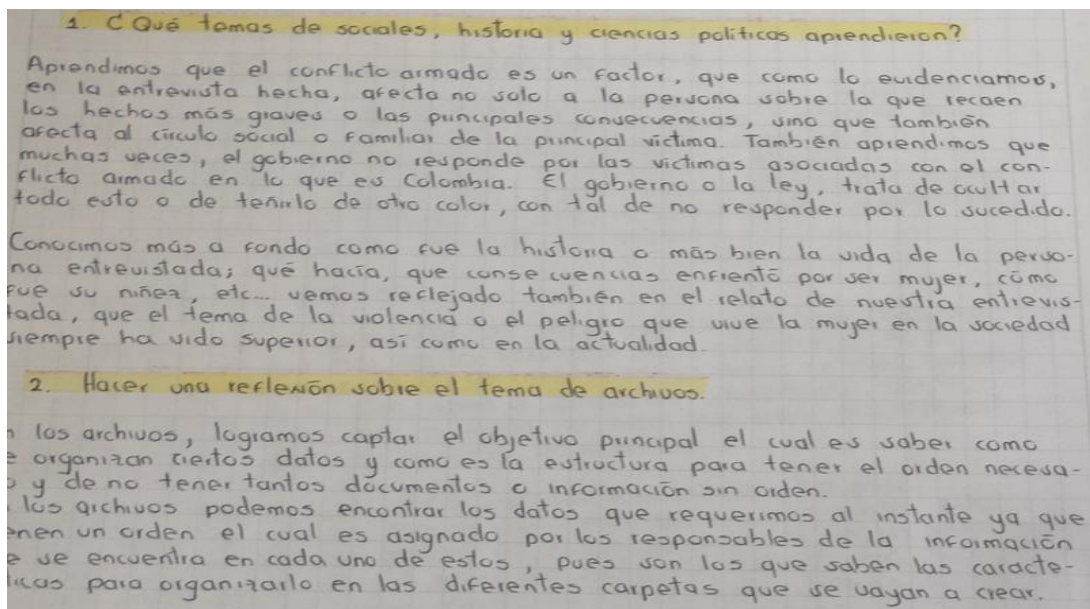 1. ¿Qué temas de sociales, historia y ciencias políticas aprendieron?
Aprendimos que el conflicto armado es un factor, que como lo evidenciamos,
en la entrevista hecha, afecta no solo a la persona sobre la que recaen
los hechos más graves o las principales consecuencias, sino que también
afecta al círculo social o familiar de la principal víctima. También aprendimos que
muchas veces, el gobierno no responde por las víctimas asociadas con el con-
flicto armado en lo que es Colombia. El gobierno o la ley, trata de ocultar
todo esto o de teñirlo de otro color, con tal de no responder por lo sucedido.
Conocimos más a fondo como fue la historia o más bien la vida de la perso-
na entrevistada; qué hacía, que consecuencias enfrentó por ser mujer, cómo
fue su niñez, etc... vemos reflejado también en el relato de nuestra entrevis-
tada, que el tema de la violencia o el peligro que vive la mujer en la sociedad
siempre ha sido superior, así como en la actualidad.
2. Hacer una reflexión sobre el tema de archivos.
los archivos, logramos captar el objetivo principal el cual es saber como
organizan ciertos datos y como es la estructura para tener el orden necesa-
y de no tener tantos documentos o información sin orden.
los archivos podemos encontrar los datos que requerimos al instante ya que
enen un orden el cual es asignado por los responsables de la información
e se encuentra en cada uno de estos, pues son los que saben las caracte-
ticas para organizarlo en las diferentes carpetas que se vayan a crear.